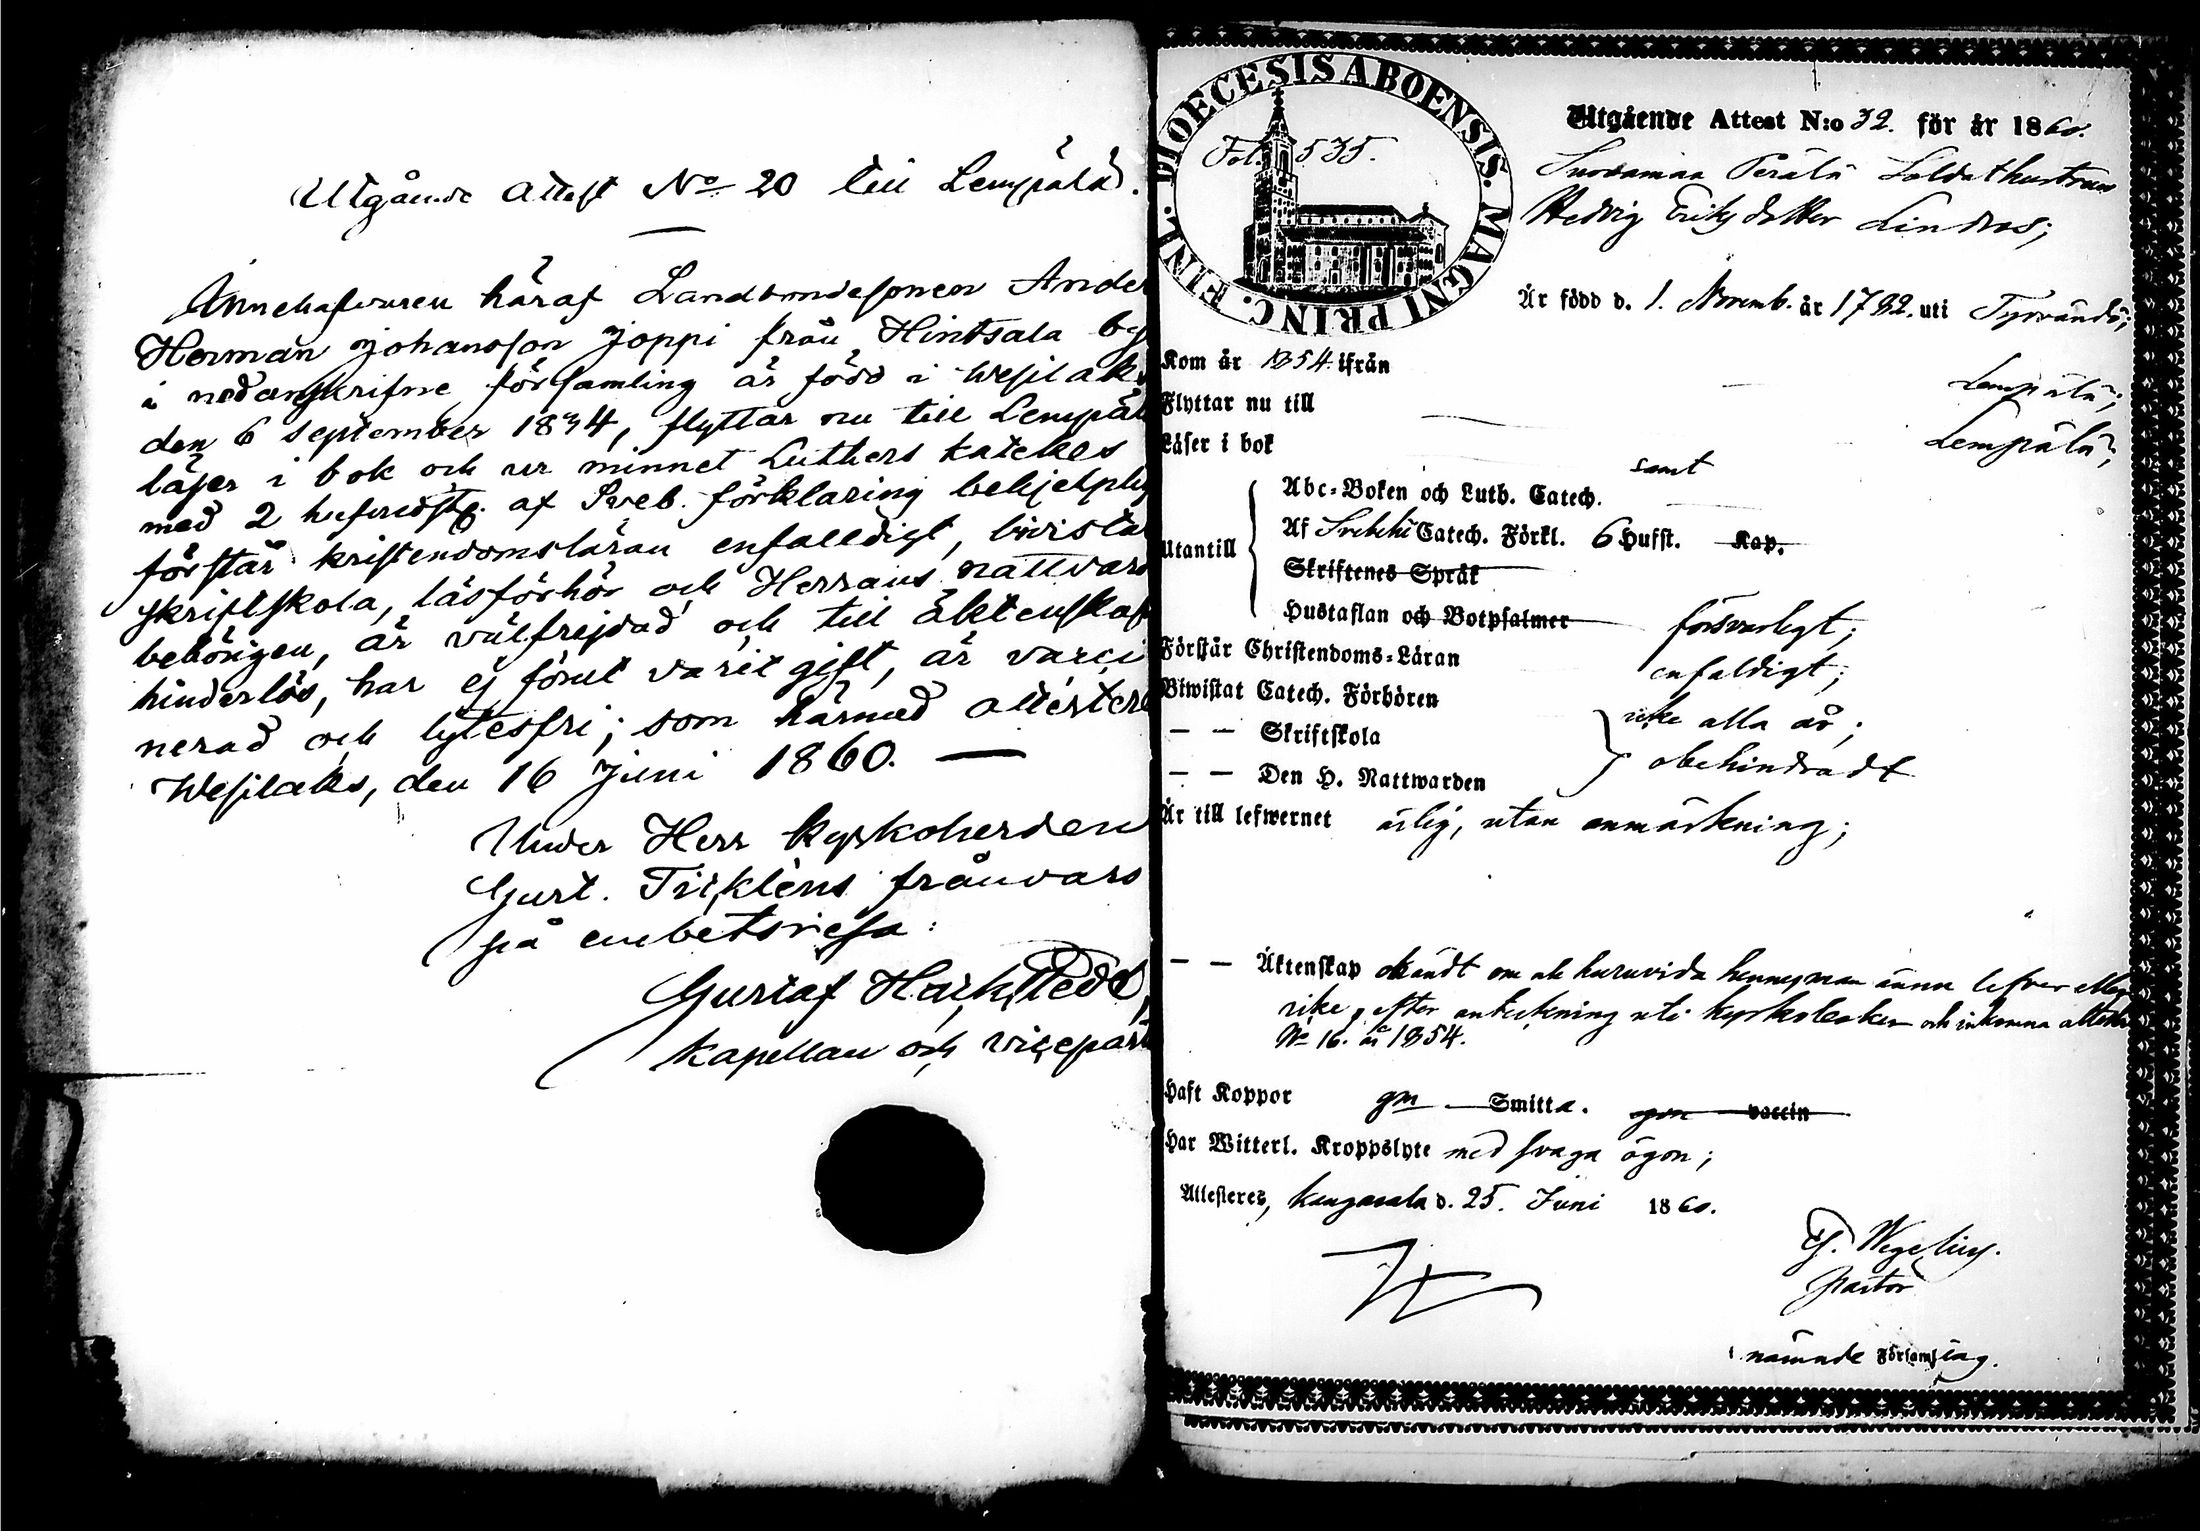 Utgående attest No 20 till Lempälä.
Innehafvaren häraf Landbondesonen Ander
Herman Johansson Joppi från Hintsala by
i nedanskrifne församling är född i Wesilaks
den 6 September 1834, flyttar nu till Lempälä
läser i bok och ur minnet Luthers katekes
med 2 hufvudst. af Sveb. förklaring behjelplig
förstår kristendomsläran enfalldigt, bivistat
skriftskola, läsförhör och Herrans nattvard
behörigen, är välfrejdad och till äktenskap
hinderlös, har ej förut varit gift, är vacci
nerad och lytesfri; som härmed attestera
Wesilaks, den 16 Juni 1860. —
Under Herr Kyrkoherden
Gust. Ticklèns frånvaro
på embetsresa:
Gustaf Hackstedt,
kapellan och vicepast
DIOECESIS ABOENSIS. MAGNI PRINC. FINL.
Fol. 535.
Utgående Attest N:o 32. för år 1860.
Suoramaa Perälä Soldathustrun
Hedvig Eriksdotter Lindroos;
Är född d. 1. Novemb. år 1792. uti Tyrvändö;
Kom år 1854 ifrån Lempälä;
Flyttar nu till Lempälä;
Läser i bok samt
Utantill
Abc-Boken och Luth. Catech.
Af Svebelii Catech. Förkl. 6 Hufst. Kap.
Skriftenes Språk
Hustaflan och Botpsalmer försvarligt;
Förstår Christendoms-Läran enfaldigt;
Biwistat Catech. Förhören icke alla år;
— — Skriftskola
— — Den H. Nattwarden obehindradt
Är till lefwernet ärlig, utan anmärkning;
— — Äktenskap okändt om och huruvida hennes man ännu lefver eller
icke, efter anteckning uti kyrkoboken och inkomna attesten
No 16. år 1854.
Haft Koppor gm Smitta. gm vaccin
Har Witterl. Kroppslyte med svaga ögon;
Attesteres, Kangasala d. 25. Juni 1860.
G. Wegelius.
Pastor
i nämnde Församling.